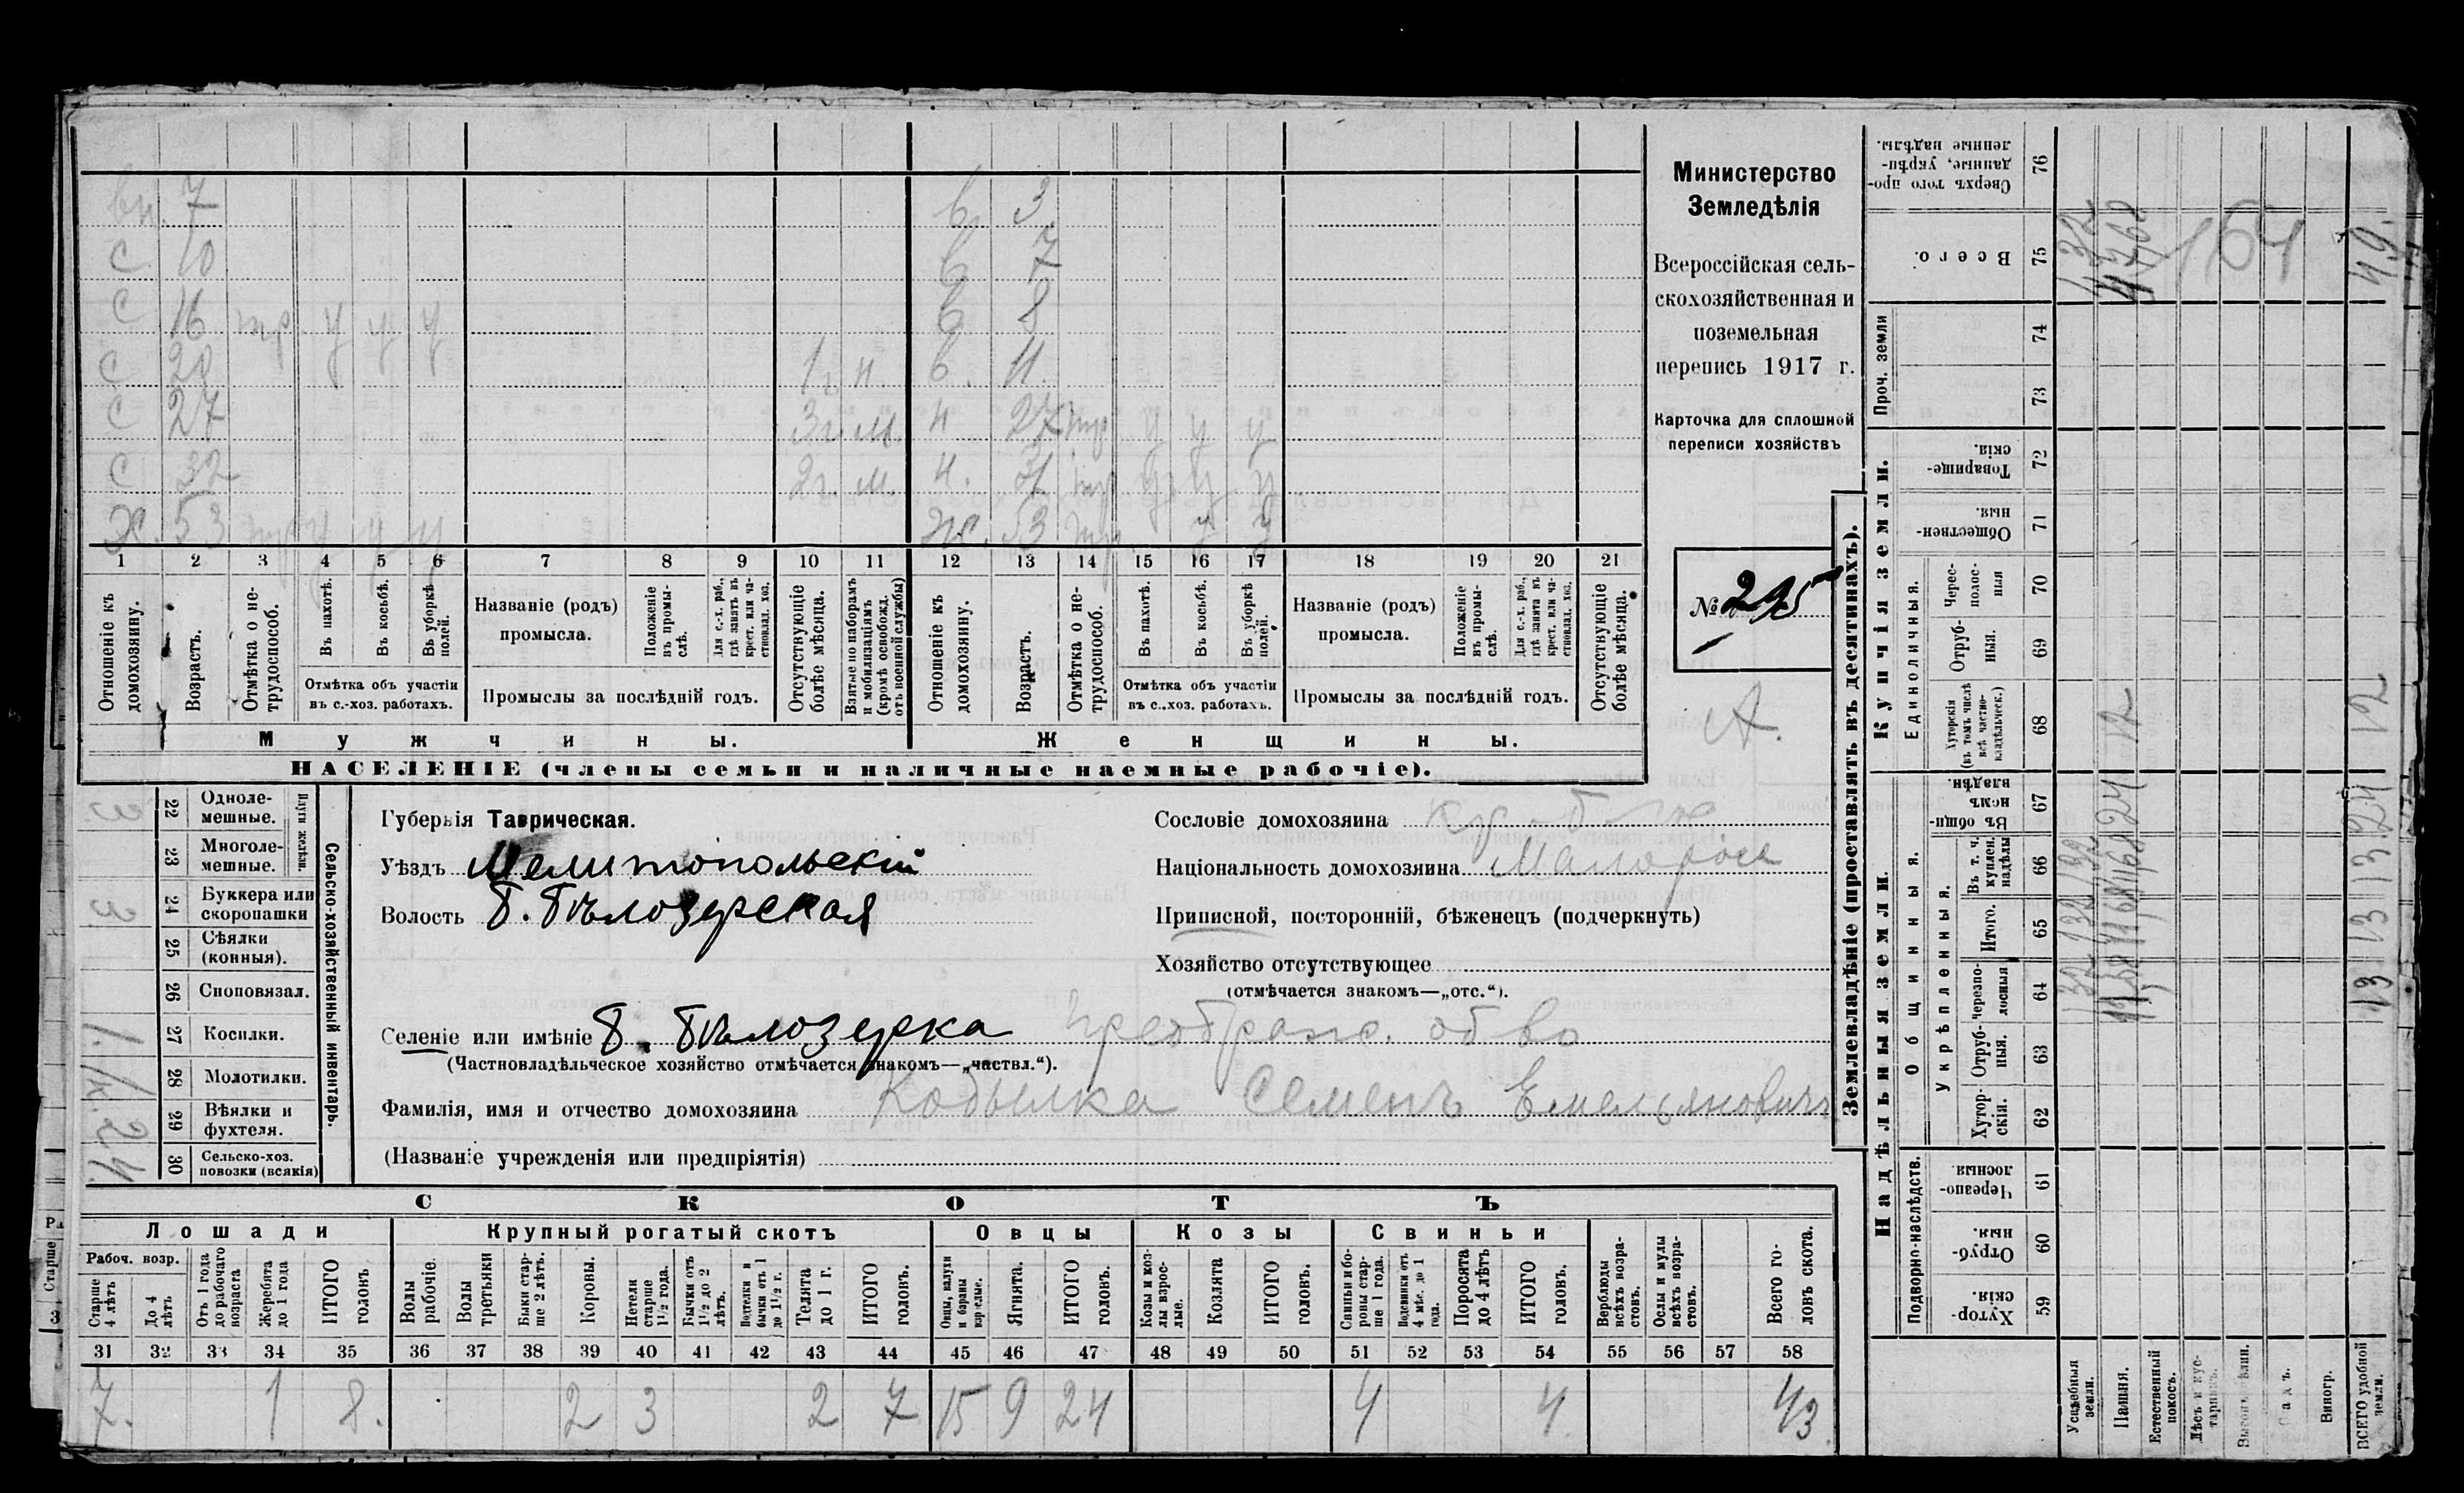 вн. 7 в. 3
с 10 в 7
с 16 тр у у у в 8
с 20 1 г. н. в. 11.
с 27 3 г. м. н 27 тр у у у
с 32 2 г. м. н. 31 тр у у у
х. 53 тр у у у ж. 53 тр. у у
1 2 3 4 5 6 7 8 9 10 11 12 13 14 15 16 17 18 19 20 21
Отношеніе къ домохозяину.
Возрастъ.
Отмѣтка о не-трудоспособ.
Въ пахотѣ.
Въ косьбѣ.
Въ уборкѣ полей.
Отмѣтка объ участіи
въ с.-хоз. работахъ.
Названіе (родъ)
промысла.
Положеніе въ промы-слѣ.
Для с.-х. раб., гдѣ занятъ въ крест. или ча-стновлад. хоз.
Промыслы за послѣдній годъ.
Отсутствующіе болѣе мѣсяца.
Взятые по наборамъ и мобилизаціямъ (кромѣ освобожд. отъ военной службы)
Отношеніе къ домохозяину.
Возрастъ.
Отмѣтка о не-трудоспособ.
Въ пахотѣ.
Въ косьбѣ.
Въ уборкѣ полей.
Отмѣтка объ участіи
въ с.-хоз. работахъ.
Названіе (родъ)
промысла.
Положеніе въ промы-слѣ.
Для с.-х. раб., гдѣ занята въ крест. или ча-стновлад. хоз.
Промыслы за послѣдній годъ.
Отсутствующіе болѣе мѣсяца.
Мужчины. Женщины.
НАСЕЛЕНІЕ (члены семьи и наличные наемные рабочіе).
Министерство
Земледѣлія
Всероссійская сель-
скохозяйственная и
поземельная
перепись 1917 г.
Карточка для сплошной
переписи хозяйствъ
№ 295
А.
Плуги желѣзн.
22 Одноле-мешные.
23 Многоле-мешные.
24 Буккера или скоропашки 3
25 Сѣялки (конныя).
26 Сноповязал.
27 Косилки. 1.
28 Молотилки. 1к.
29 Вѣялки и фухтеля. 2
30 Сельско-хоз. повозки (всякія) 4.
Сельско-хозяйственный инвентарь.
Губернія Таврическая.
Уѣздъ Мелитопольскій
Волость Б. Бѣлозерская
Селеніе или имѣніе Б. Бѣлозерка Преображ. об во
(Частновладѣльческое хозяйство отмѣчается знакомъ—„частвл.“).
Фамилія, имя и отчество домохозяина Кобылка Семенъ Емельяновичъ
(Названіе учрежденія или предпріятія)
Сословіе домохозяина
Національность домохозяина Малоросс
Приписной, посторонній, бѣженецъ (подчеркнуть)
Хозяйство отсутствующее
(отмѣчается знакомъ—„отс.“).
СКОТЪ
Лошади Крупный рогатый скотъ Овцы Козы Свиньи
Рабоч. возр.
Старше 4 лѣтъ
До 4 лѣтъ
Отъ 1 года до рабочаго возраста
Жеребята до 1 года
ИТОГО головъ.
Волы рабочіе.
Волы третьяки
Быки стар-ше 2 лѣтъ.
Коровы.
Нетели старше 1½ года.
Бычки отъ 1½ до 2 лѣтъ.
Подтелки и бычки отъ 1 до 1½ г.
Телята до 1 г.
ИТОГО головъ.
Овцы, валухи и бараны взрослые.
Ягнята.
ИТОГО головъ.
Козы и коз-лы взрос-лые.
Козлята
ИТОГО головъ.
Свиньи и бо-ровы стар-ше 1 года.
Подсвинки отъ 4 мѣс. до 1 года.
Поросята до 4 лѣтъ
ИТОГО головъ.
Верблюды всѣхъ возра-стовъ.
Ослы и мулы всѣхъ возра-стовъ.
Всего го-ловъ скота.
31 32 33 34 35 36 37 38 39 40 41 42 43 44 45 46 47 48 49 50 51 52 53 54 55 56 57 58
7. 1 8. 2 3 2 7 15 9 24 4 4. 43.
Землевладѣніе (проставлять въ десятинахъ).
Купчія земли.
Надѣльныя земли.
Сверхъ того про-данные, укрѣп-ленные надѣлы. 76
Всего. 75 4768 164 49.
Проч. земли 74 73
Товарище-скія. 72
Обществен-ныя. 71
Единоличныя.
Черес-полос-ныя 70
Отруб-ныя. 69
Хуторскія (въ томъ числѣ всѣ частно-владѣльческ.) 68 12 12
Общинныя.
Въ общин-номъ владѣн. 67 24 24
Укрѣпленныя.
Въ т. ч. куплен. надѣлы 66 132 1168 13
Итого. 65 132 1168 13
Черезпо-лосныя 64 132 1168 13
Отруб-ныя. 63
Хутор-скія. 62
Подворно-наслѣдств.
Черезпо-лосныя. 61
Отруб-ныя. 60
Хутор-скія. 59
Усадебныя земли.
Пашня.
Естественный покосъ.
Лѣсъ и кус-тарникъ.
Садъ.
Виногр.
ВСЕГО удобной земли.